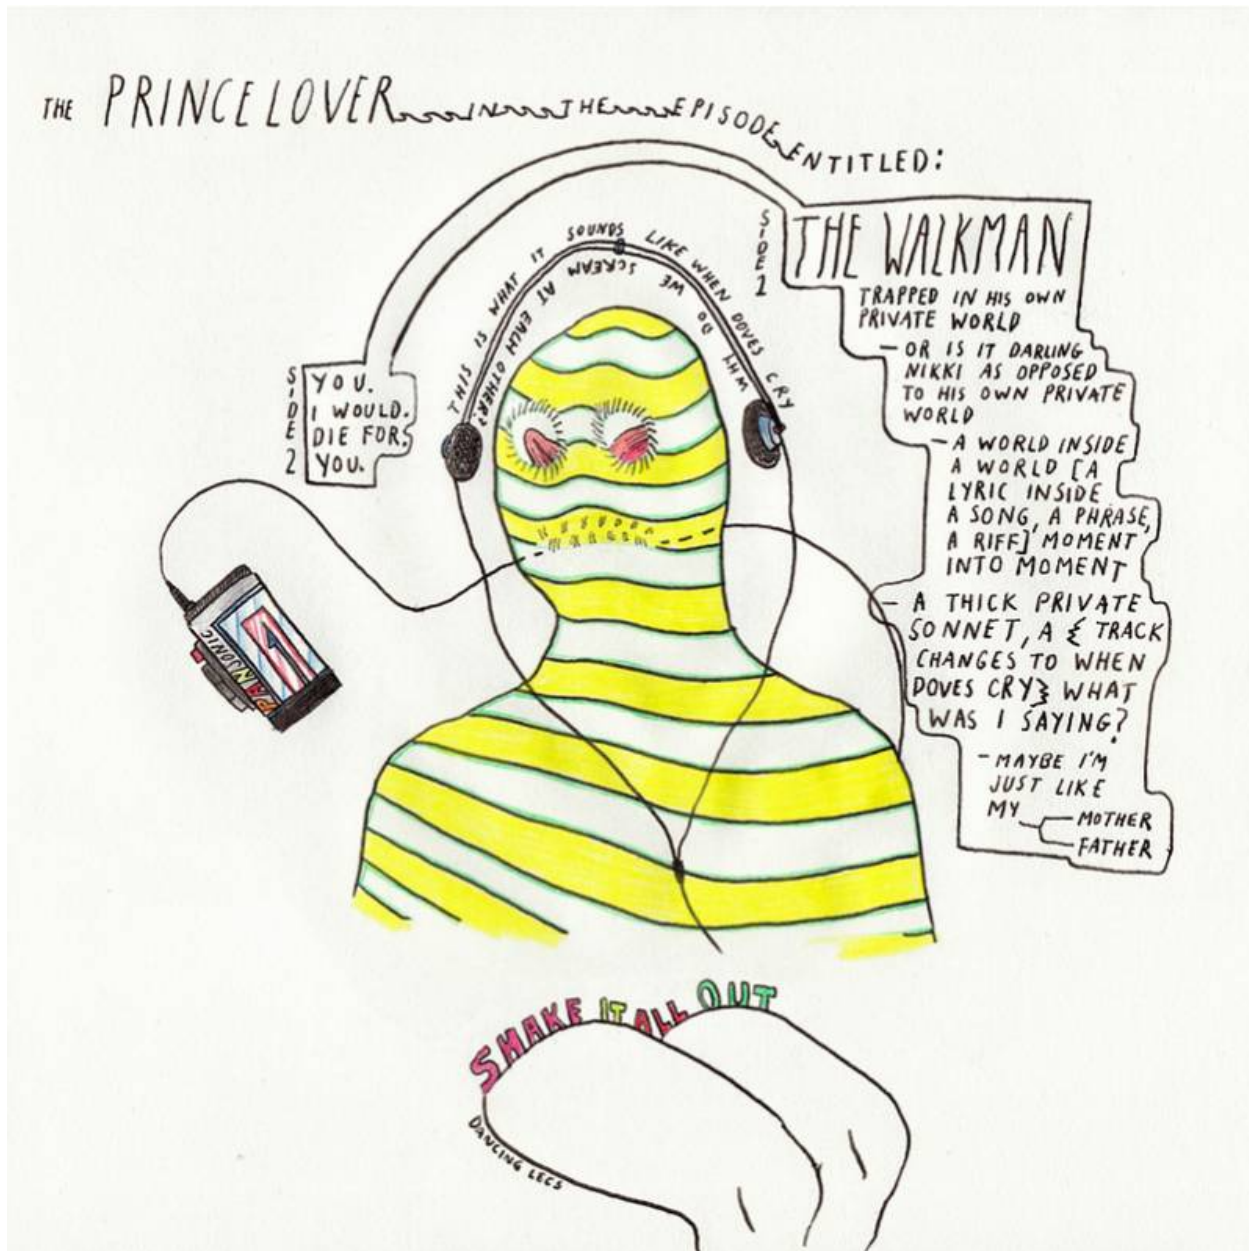 THE PRINCE LOVER IN THE EPISODE ENTITLED:
SIDE 1
THE WALKMAN
TRAPPED IN HIS OWN
PRIVATE WORLD
— OR IS IT DARLING
NIKKI AS OPPOSED
TO HIS OWN PRIVATE
WORLD
— A WORLD INSIDE
A WORLD [A
LYRIC INSIDE
A SONG, A PHRASE,
A RIFF] MOMENT
INTO MOMENT
— A THICK PRIVATE
SONNET, A { TRACK
CHANGES TO WHEN
DOVES CRY} WHAT
WAS I SAYING?
- MAYBE I'M
JUST LIKE
MY
MOTHER
FATHER
THIS IS WHAT IT SOUNDS LIKE WHEN DOVES CRY
WHY DO WE SCREAM AT EACH OTHER?
SIDE 2
YOU.
I WOULD.
DIE FOR.
YOU.
PAINSONIC
SHAKE IT ALL OUT
DANCING LEGS